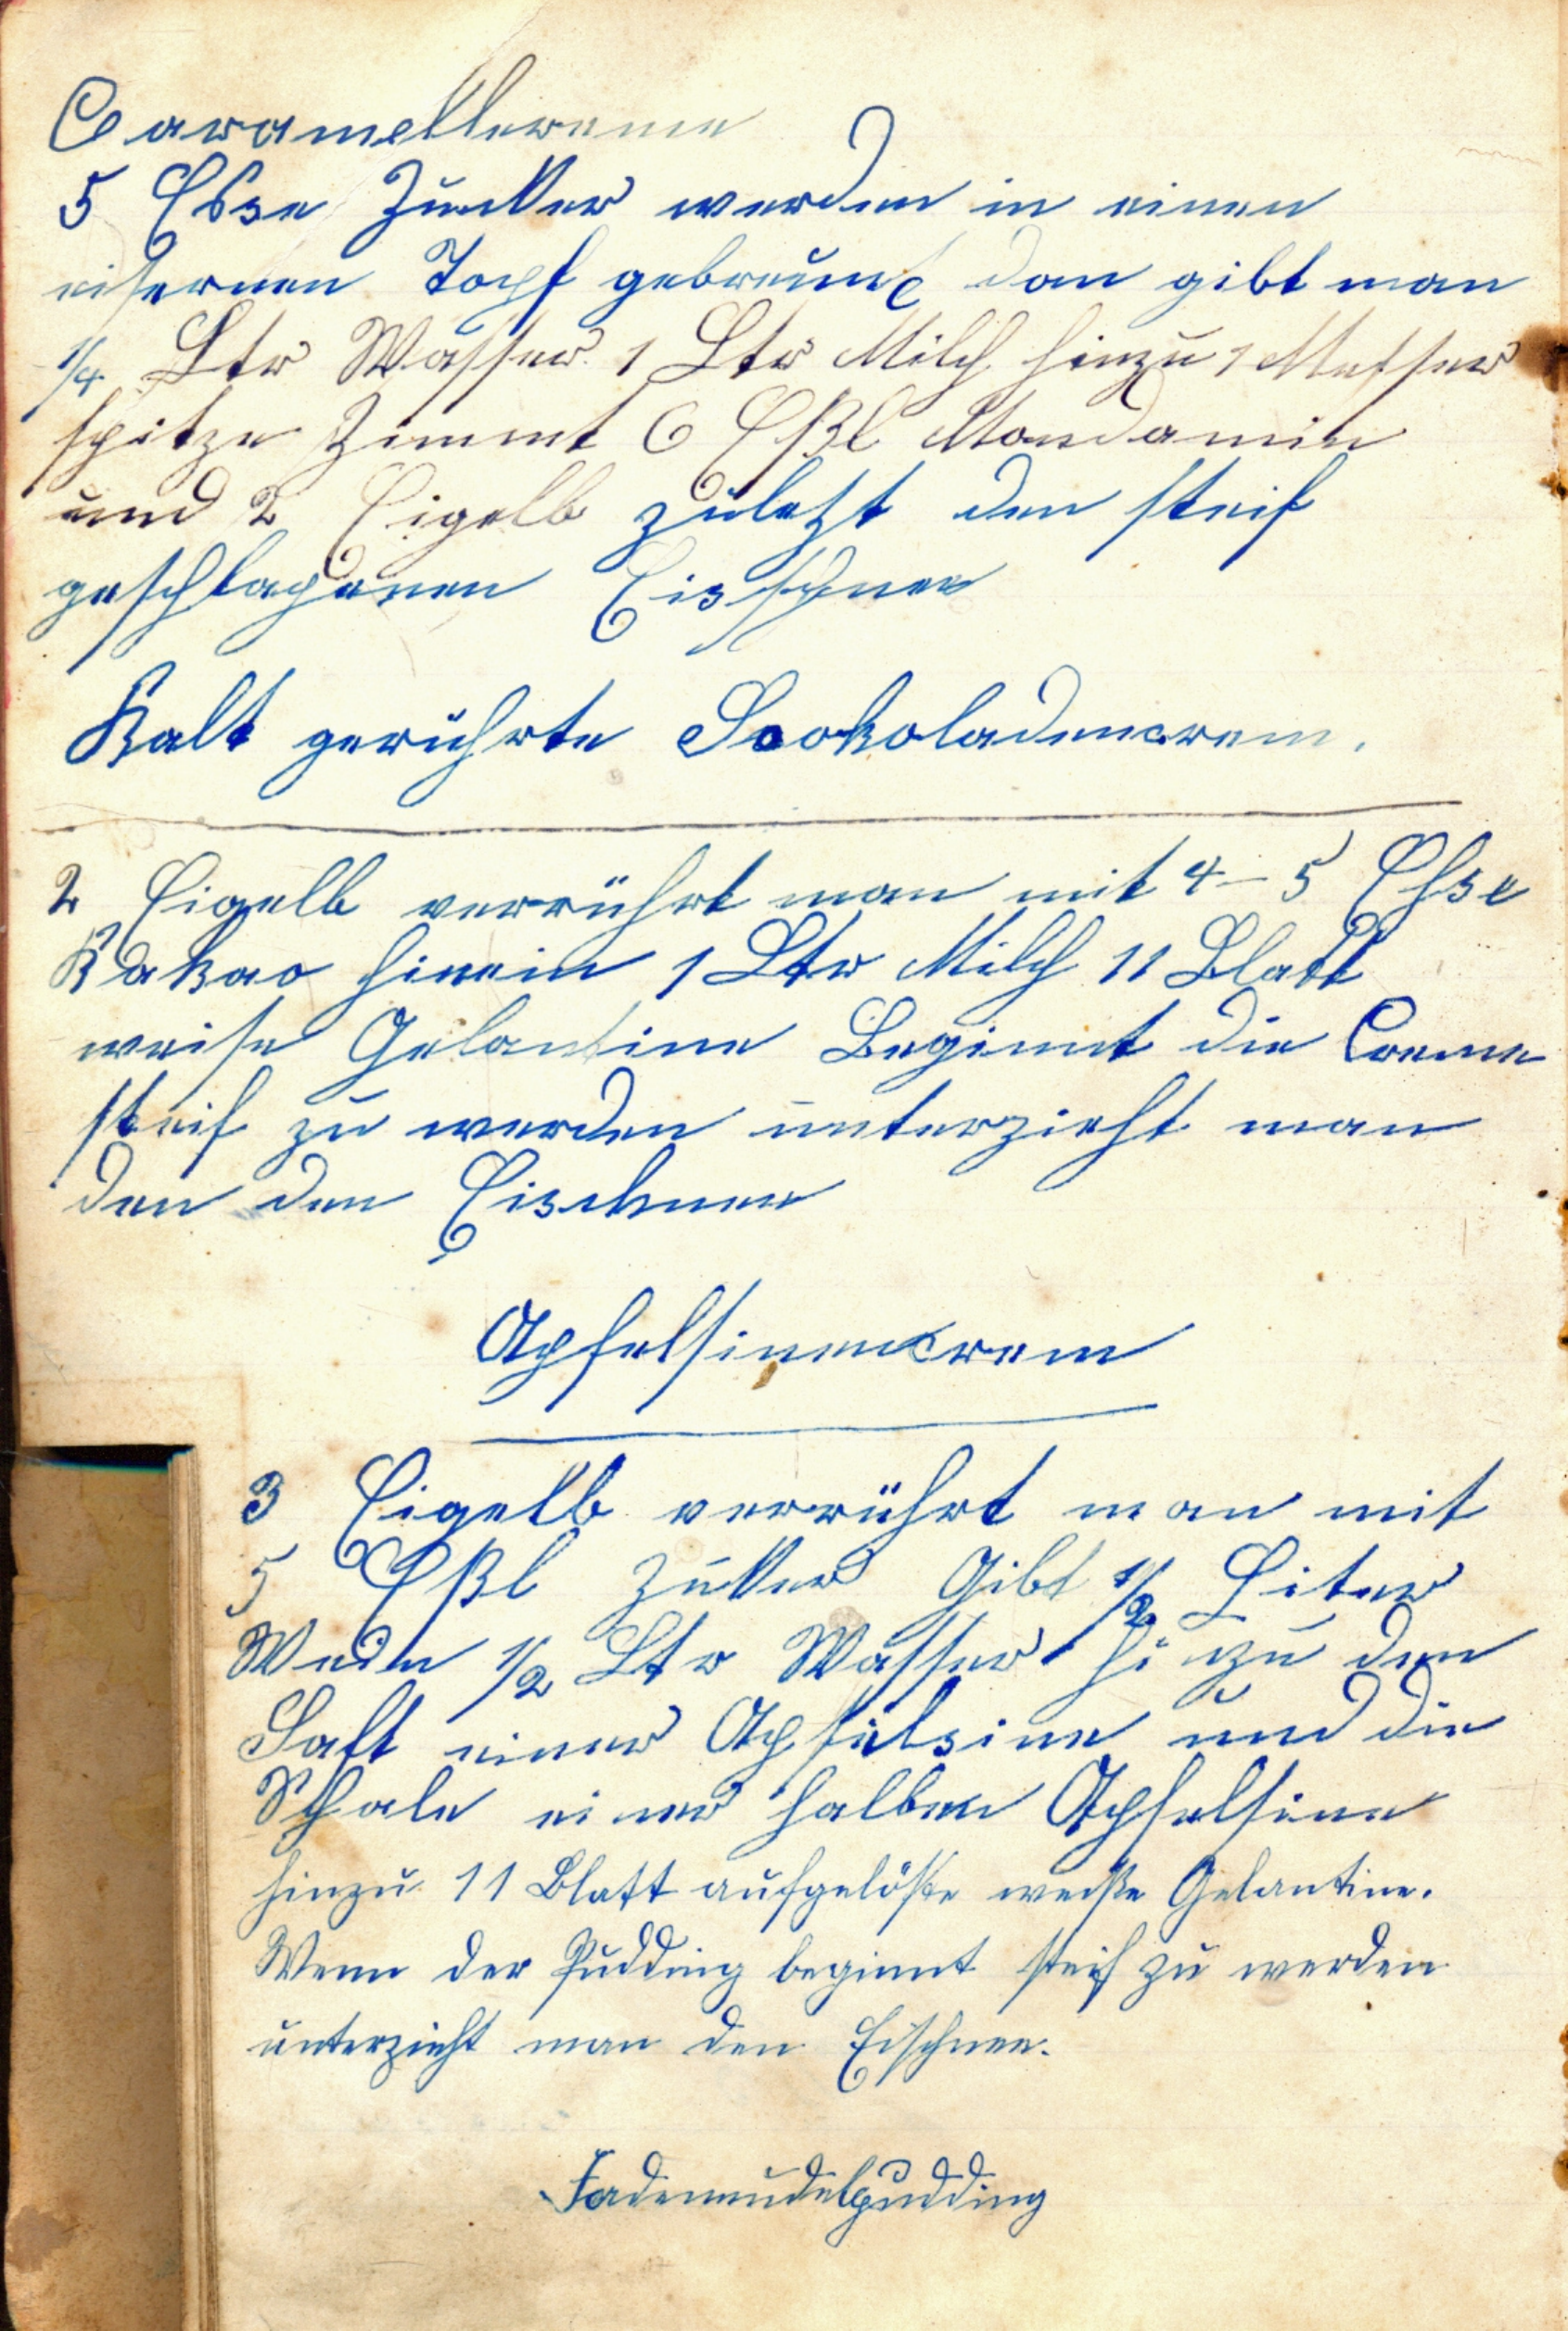 Caramellcreme
5 Essl Zucker werden in einen
eisernen Topf gebreunt dan gibt man
1/4 Ltr Wasser 1 Ltr Milch hinzu 1 Messer
spitze Zimmt 6 Eßl Mondamin
und 2 Eigelb zuletzt den steif
geschlagenen Eisschnee
Kalt gerührte Scokoladencrem.
2 Eigelb verrührt man mit 4-5 Essl
Kakao hinein 1 Ltr Milch 11 Blatt
weise Gelantine Beginnt die Creme
steif zu werden unterzieht man
den den Eischnee
Apfelsinencrem
3 Eigelb verrührt man mit
5 Eßl Zucker Gibt 1/2 Liter
1/2 Ltr Wasser hinzu den
Saft einer Apfelsine und die
Schale einer halben Apfelsine
hinzu 11 Blatt aufgelößte weiße Gelantine.
Wenn der Pudding beginnt steif zu werden
unterzieht man den Eischnee.
Fadennudelpudding